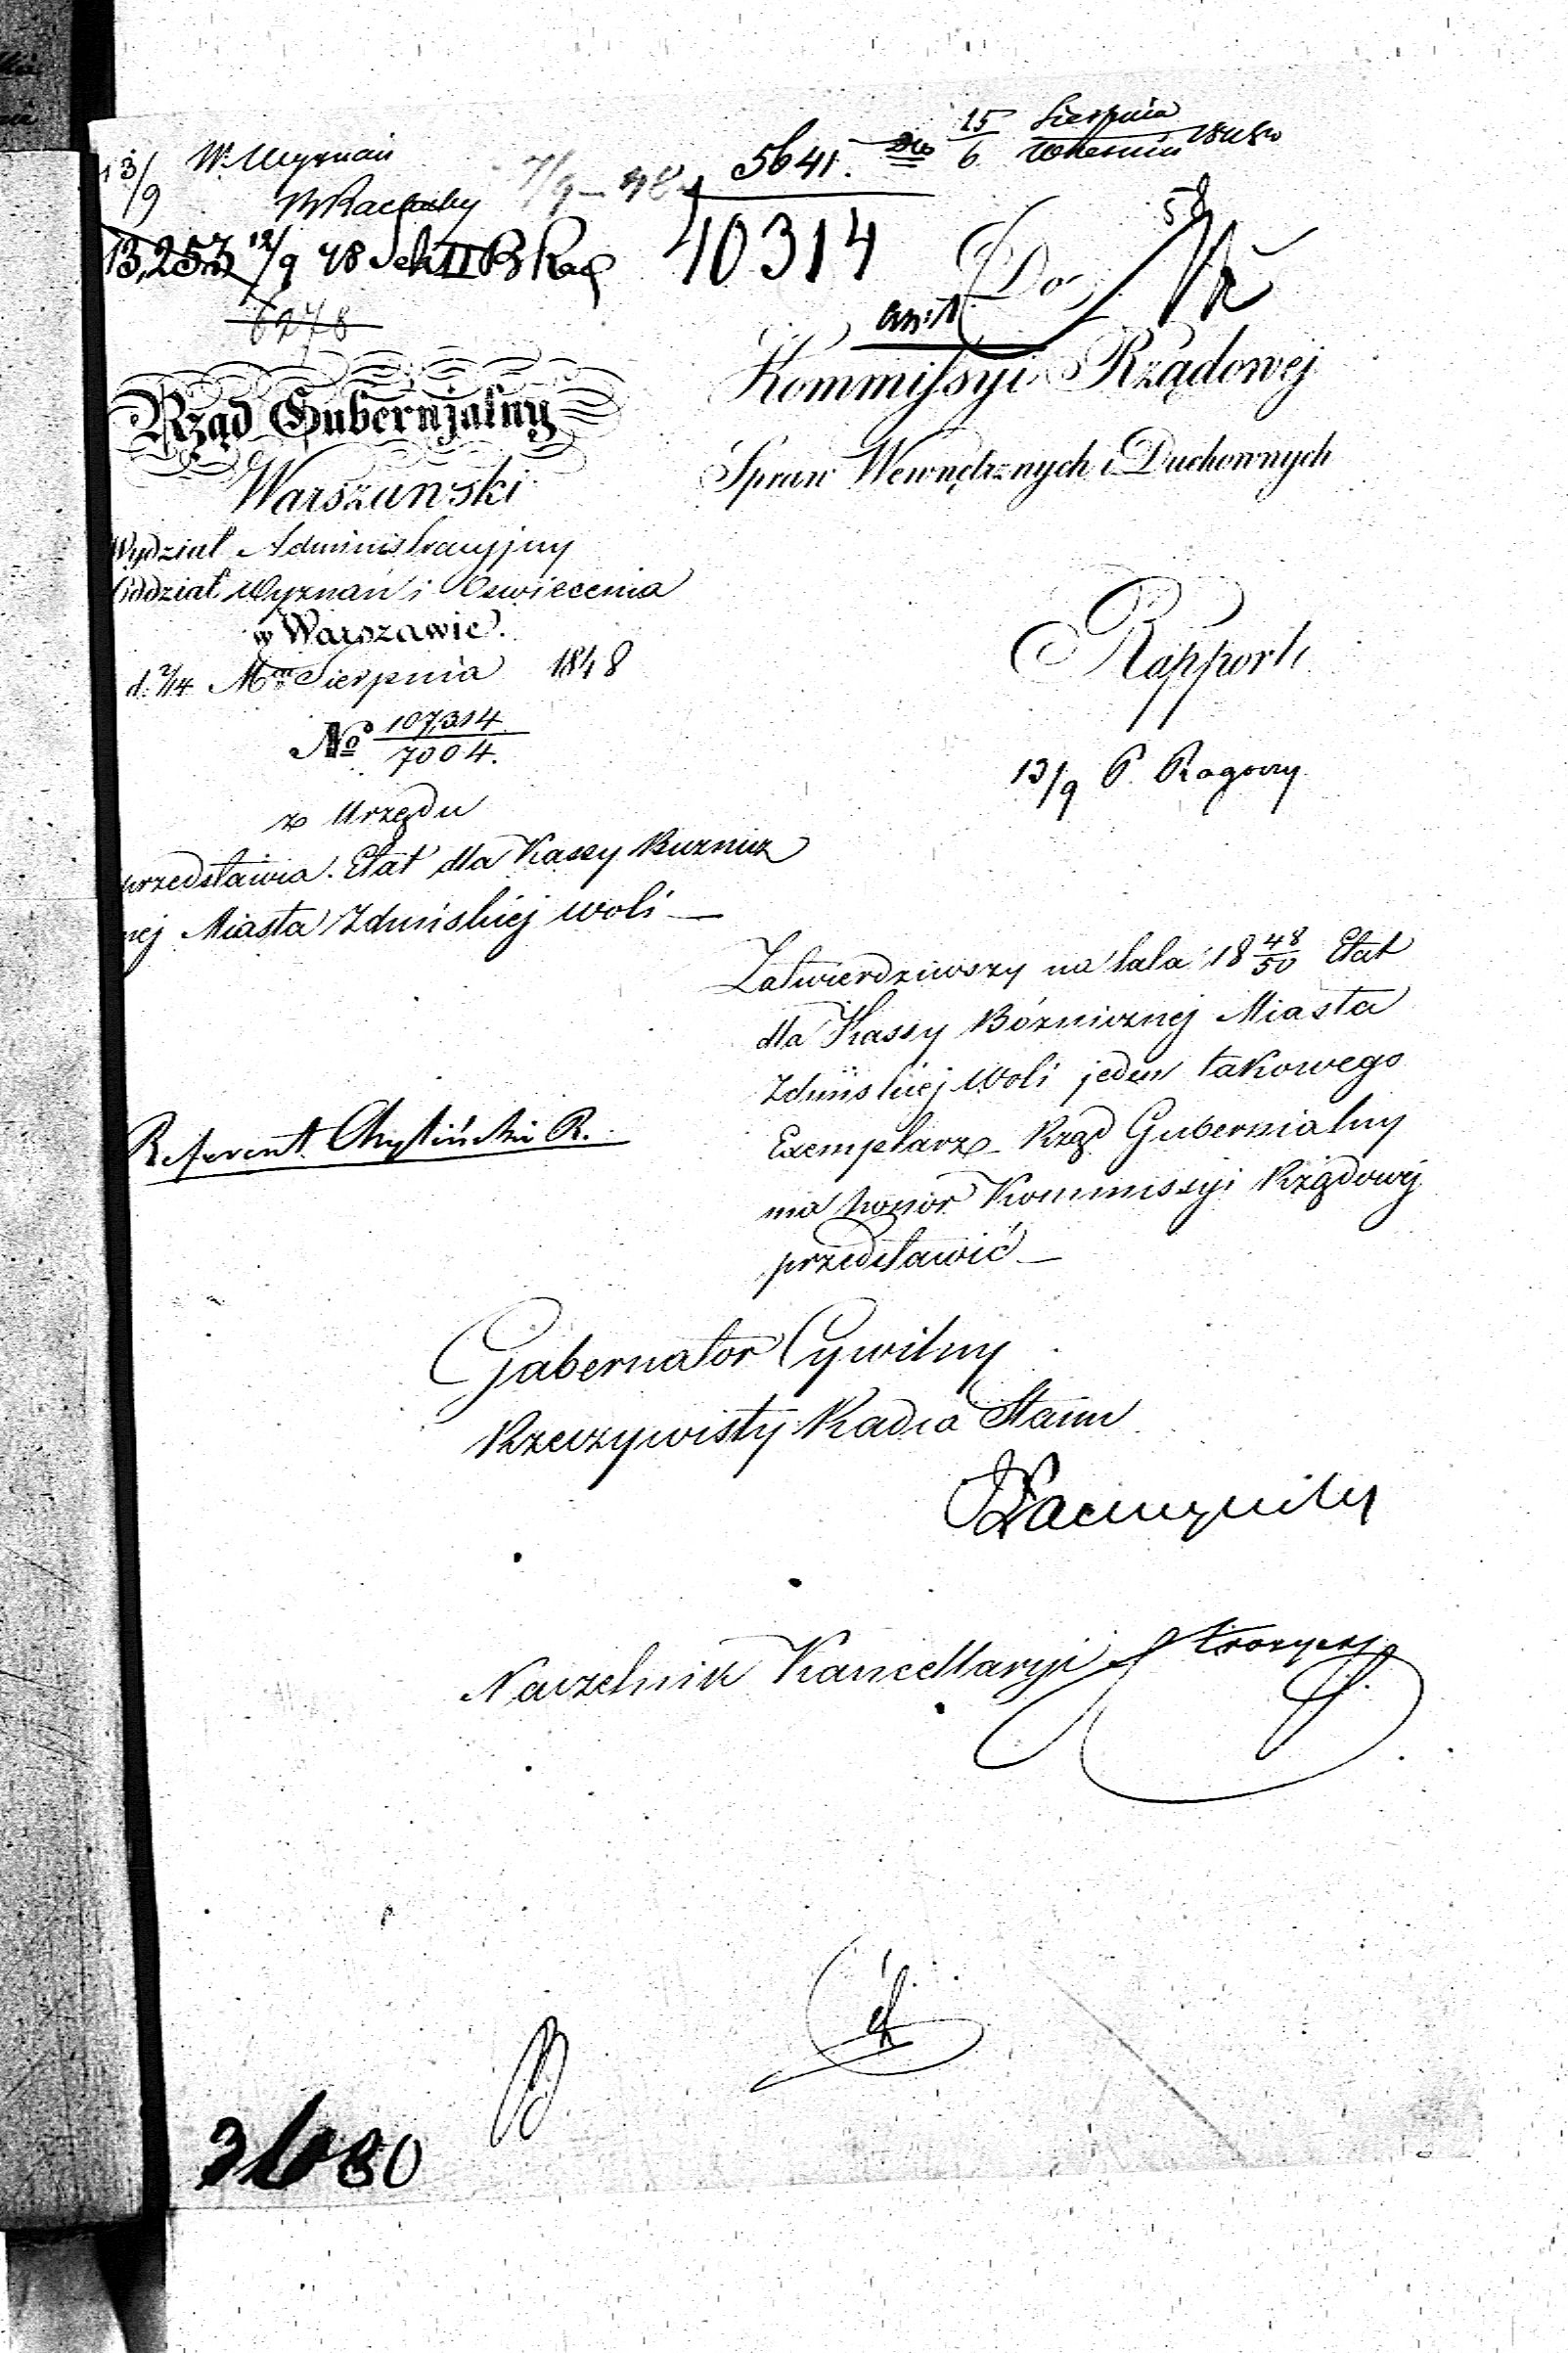 13/9 W. Wyznań
5641. 15/6 Sierpnia Września
7/9 - 48
13,253 12/9 48 Sek II B
40314
6278
58
Do
Kommissyi Rządowej
Spraw Wewnętrznych i Duchownych
Rząd Gubernjalny
Warszawski
Wydział Administracyjny
Oddział Wyznań i Oswiecenia
w Warszawie.
d. 2/14 Mca Sierpnia 1848
No 107,314/7004.
Rapport
13/9 P. Ragoczy
z Urzędu
przedstawia Etat dla Kassy Buznicz
nej Miasta Zduńskiej Woli —
Zatwierdziwszy na lata 18 48/50 Etat
dla Kassy Bóżnicznej Miasta
Zduńskiej Woli jeden takowego
Exemplarz Rząd Gubernialny
ma honor Kommissyi Rządowej
przedstawić —
Referent
Gubernator Cywilny
Rzeczywisty Radca Stanu
Naczelnik Kancellaryi
80